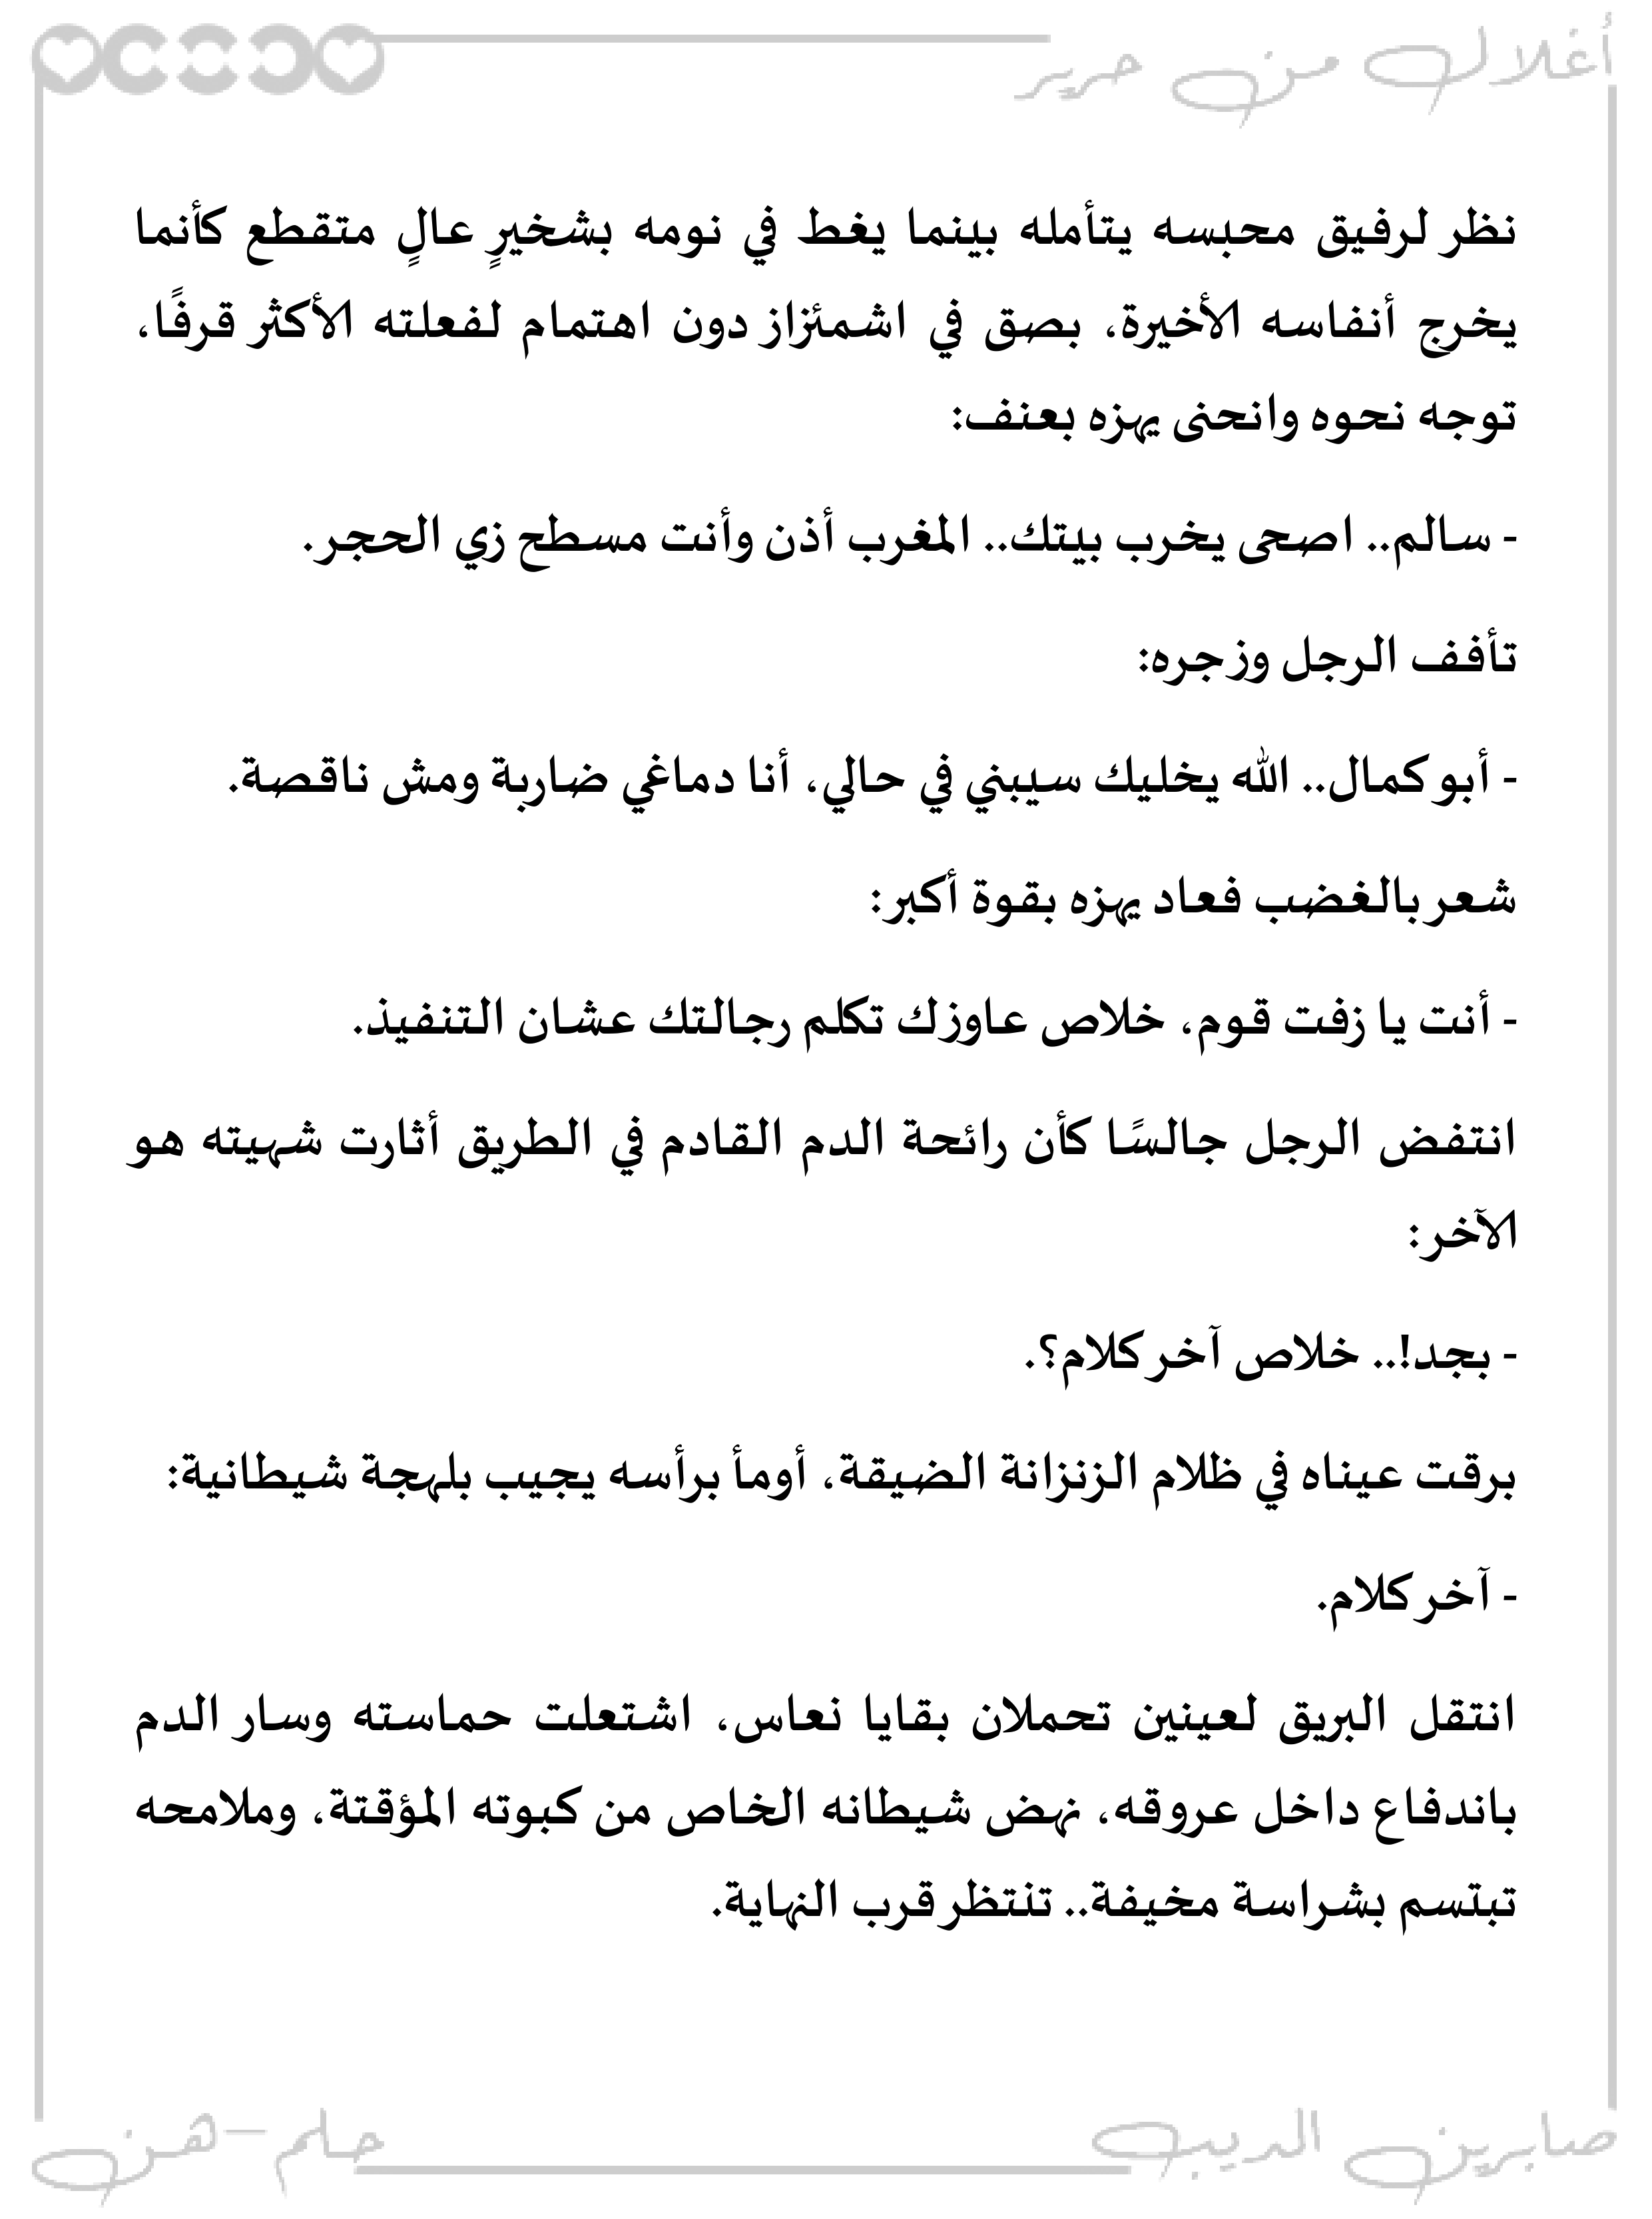 أغلال من حرير
نظر لرفيق محبسه يتأمله بينما يغط في نومه بشخيرٍ عالٍ متقطع كأنما
يخرج أنفاسه الأخيرة، بصق في اشمئزاز دون اهتمام لفعلته الأكثر قرفًا،
توجه نحوه وانحنى يهزه بعنف:
- سالم.. اصحى يخرب بيتك.. المغرب أذن وأنت مسطح زي الحجر.
تأفف الرجل وزجره:
- أبو كمال.. الله يخليك سيبني في حالي، أنا دماغي ضاربة ومش ناقصة.
شعر بالغضب فعاد يهزه بقوة أكبر:
- أنت يا زفت قوم، خلاص عاوزك تكلم رجالتك عشان التنفيذ.
انتفض الرجل جالسًا كأن رائحة الدم القادم في الطريق أثارت شهيته هو
الآخر:
- بجد!.. خلاص آخر كلام؟.
برقت عيناه في ظلام الزنزانة الضيقة، أومأ برأسه يجيب بلهجة شيطانية:
- آخر كلام.
انتقل البريق لعينين تحملان بقايا نعاس، اشتعلت حماسته وسار الدم
باندفاع داخل عروقه، نهض شيطانه الخاص من كبوته المؤقتة، وملامحه
تبتسم بشراسة مخيفة.. تنتظر قرب النهاية.
صابرين الديب
حلم-هن